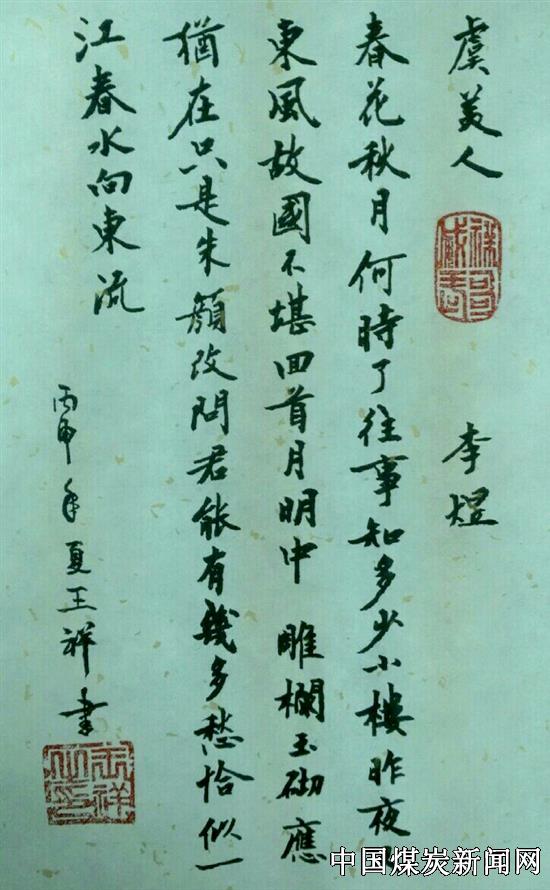 虞美人 李煜
春花秋月何時了往事知多少小樓昨夜
東風故國不堪回首月明中 雕欄玉砌應
猶在只是朱顔改問君能有幾多愁恰似一
江春水向東流
丙申年夏王祥書
王祥之印
中国煤炭新闻网